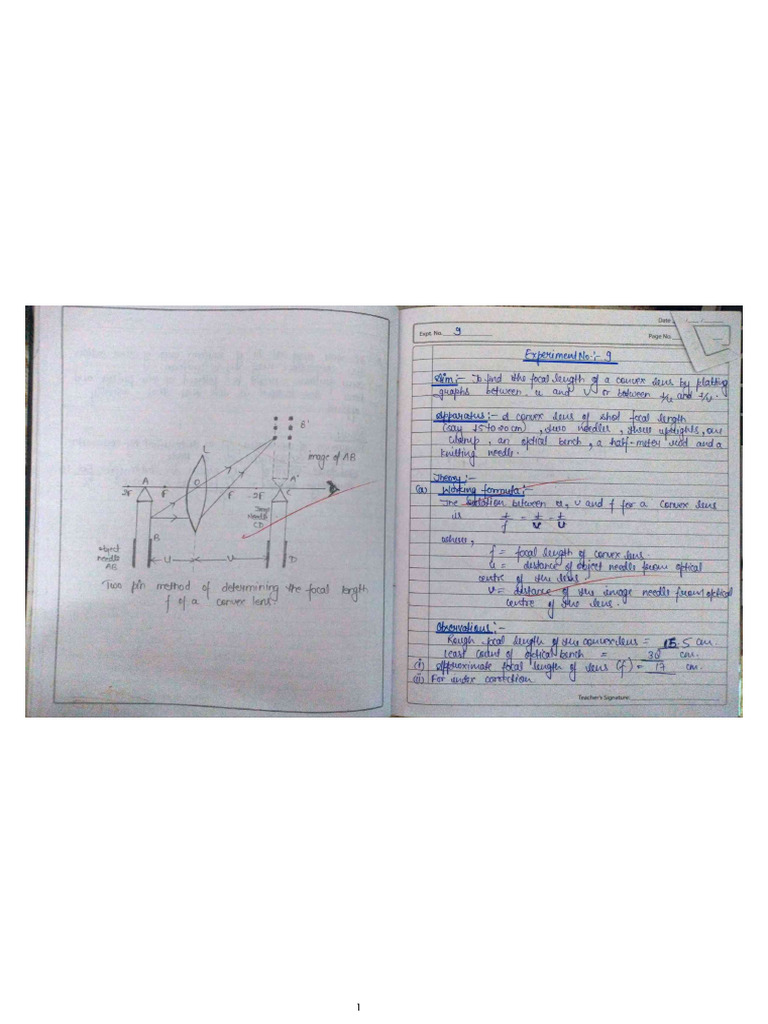 B'
L
image of AB
A
A'
2F
F
O
F
2F
C
Image
Needle
CD
B
object
needle
AB
U
V
D
Two pin method of determining the focal length
f of a convex lens
Date
Expt. No. 9
Page No.
Experiment No:- 9
Aim:- To find the focal length of a convex lens by plotting
graphs between u and V or between 1/u and 1/v.
Apparatus:- A convex lens of focal length
(say 15 to 20 cm), two needles, three uprights, one
clamp, an optical bench, a half-meter rod and a
knitting needle.
Theory:-
(a) Working formula:-
The relation between u, v and f for a convex lens
is 1/f = 1/v - 1/u
where,
f = focal length of convex lens.
u = distance of object needle from optical
centre of the lens.
v = distance of the image needle from optical
centre of the lens.
Observations:-
Rough focal length of the convex lens = 15.5 cm.
Least count of optical bench = 30 cm.
(i) Approximate focal length of lens (f) = 17 cm.
(ii) For index correction
Teacher's Signature:
1